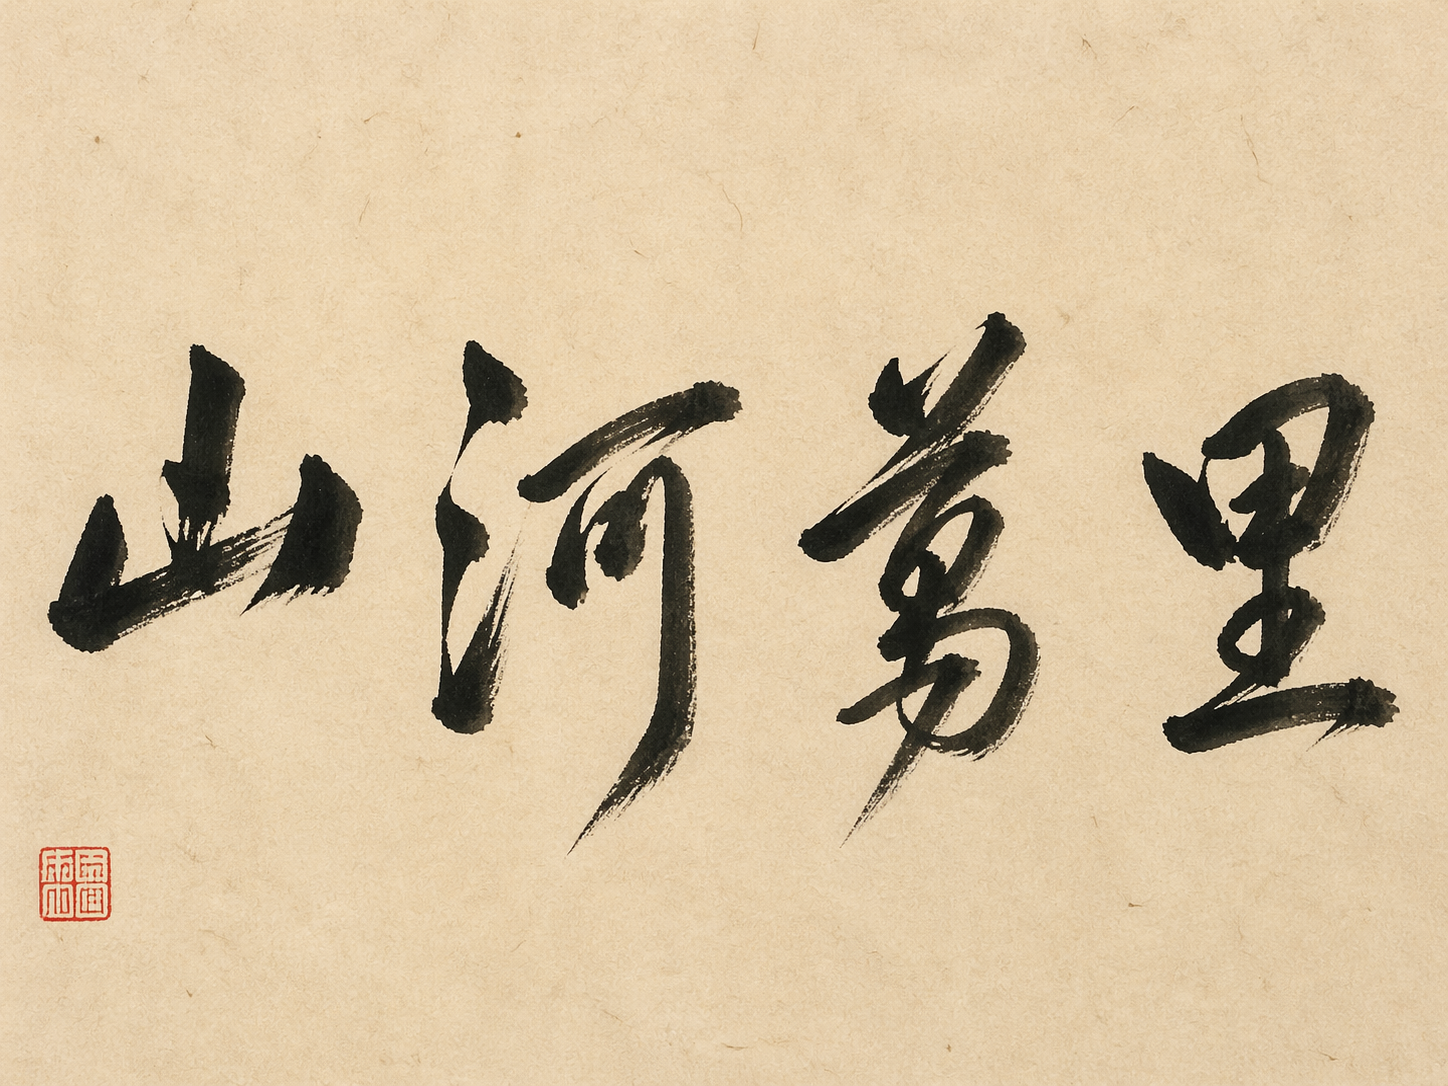 山河萬里